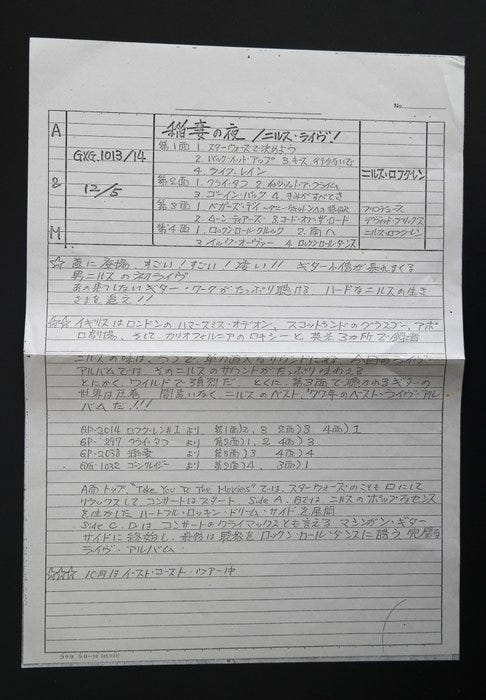 No.
A & M
GXG. 1013/14
12/5
稲妻の夜 / ニルス・ライヴ!
第1面 1. スターウォーズで決めよう
2. バック・イット・アップ 3. キース、行かないで
4. ライク・レイン
第2面 1. クライ・タフ 2. イッツ・ノット・ア・クライム
3. ゴーイン・バック 4. きみがすべてさ
第3面 1. ベガーズ・デイ
2. ムーン・ティアーズ 3. コード・オブ・ザ・ロード
第4面 1. ロックンロール・クルック 2. 南へ
3. イッツ・オーヴァー 4. ロックンロール・ダンス
ニルス・ロフグレン
プロデュース
デヴィッド・ブリッグス
ニルス・ロフグレン
☆ 遂に登場 すごい! すごい! 凄い!! ギター小僧が暴れまくる
男ニルスの初ライヴ
あの果てしないギター・ワークがたっぷり聴ける ハードなニルスの生き
ざまを追え!!
☆☆ イギリスはロンドンのハマースミス・オデオン、スコットランドのグラスゴー、アポ
ロ劇場、そしてカリフォルニアのロキシーと 英米3カ所で録音
アルバムでは、そのニルスのサウンドがたっぷり味わえる
とにかく、ワイルドで強烈だ。とくに、第3面で聴かれるギターの
世界は圧巻 間違いなく、ニルスのベスト、'77年のベスト・ライヴ・アル
バムだ!!!
GP-2014 ロフグレン#1 より 第1面)2, 3 2面)3 4面)1
GP-297 クライ・タフ より 第2面)1, 2 4面)3
GP-2038 稲妻 より 第3面)3 4面)4
より 第2面)4, 3面)1
A面トップ "Take You To The Movies" では、スターウォーズのことも口にして
リラックスしてコンサートはスタート. Side A, Bではニルスのポップなセンス
を生かしたハートフル・ロッキン・ドリーム・サイドを展開
Side C, Dは、コンサートのクライマックスとも言える マシンガン・ギター
サイドに終始し、最後は聴衆をロックン・ロール・ダンスに誘う 完璧な
ライヴ・アルバム.
☆☆☆ 10月はイースト・コースト・ツアー中.